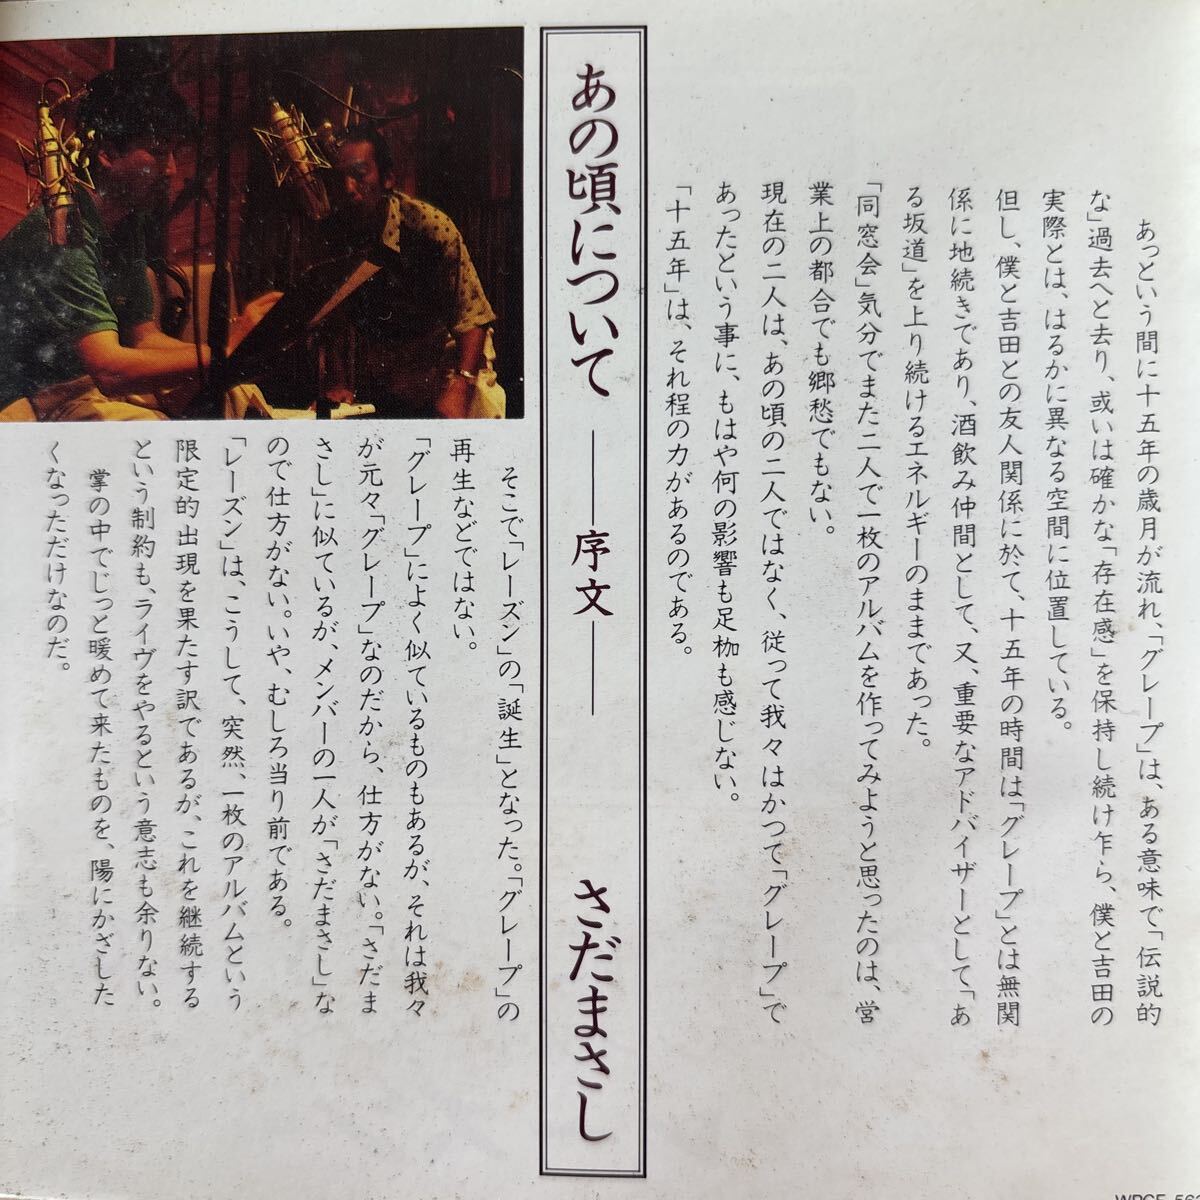 あの頃について ――序文―― さだまさし
あっという間に十五年の歳月が流れ、「グレープ」は、ある意味で「伝説的
な」過去へと去り、或いは確かな「存在感」を保持し続け乍ら、僕と吉田の
実際とは、はるかに異なる空間に位置している。
但し、僕と吉田との友人関係に於て、十五年の時間は「グレープ」とは無関
係に地続きであり、酒飲み仲間として、又、重要なアドバイザーとして「あ
る坂道」を上り続けるエネルギーのままであった。
「同窓会」気分でまた二人で一枚のアルバムを作ってみようと思ったのは、営
業上の都合でも郷愁でもない。
現在の二人は、あの頃の二人ではなく、従って我々はかつて「グレープ」で
あったという事に、もはや何の影響も足枷も感じない。
「十五年」は、それ程の力があるのである。
そこで「レーズン」の「誕生」となった。「グレープ」の
再生などではない。
「グレープ」によく似ているものもあるが、それは我々
が元々「グレープ」なのだから、仕方がない。「さだま
さし」に似ているが、メンバーの一人が「さだまさし」な
ので仕方がない。いや、むしろ当り前である。
「レーズン」は、こうして、突然、一枚のアルバムという
限定的出現を果たす訳であるが、これを継続する
という制約も、ライヴをやるという意志も余りない。
掌の中でじっと暖めて来たものを、陽にかざした
くなっただけなのだ。